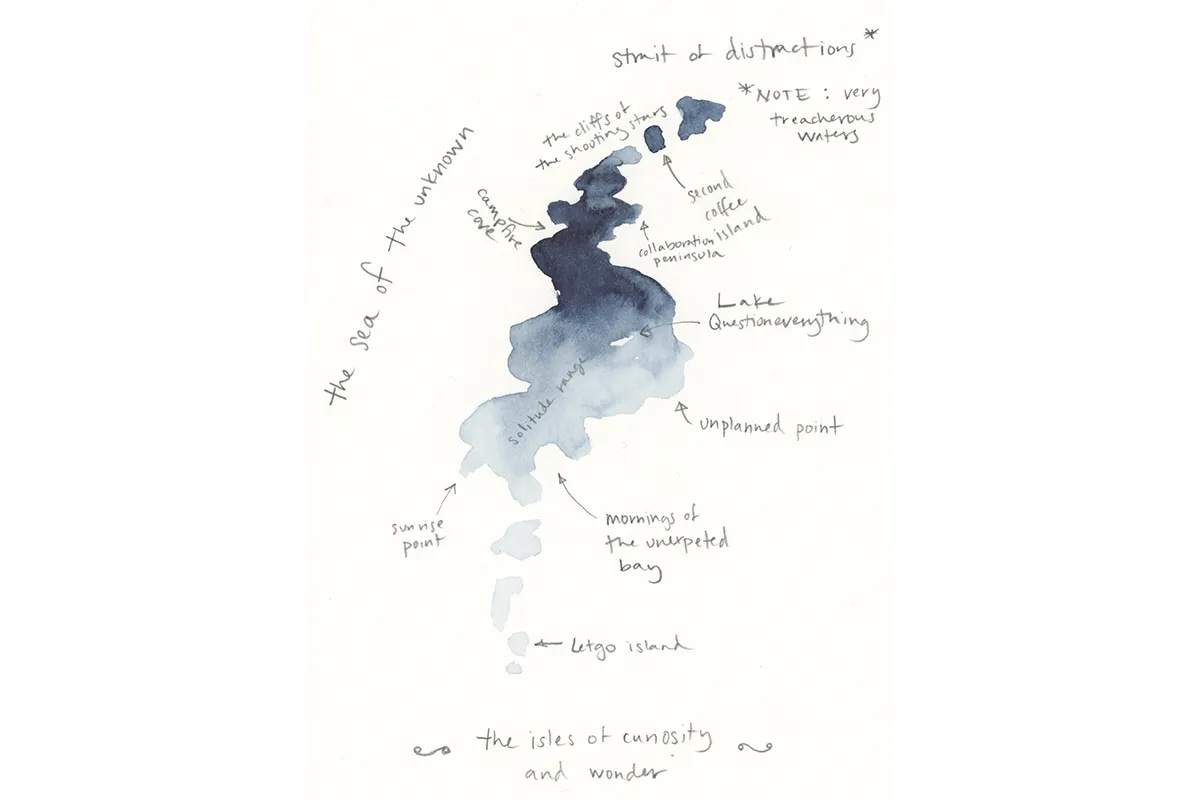 strait of distractions*
*NOTE : very
treacherous
waters
the cliffs of
the shooting stars
the sea of the unknown
second
coffee
island
campfire
cove
collaboration
peninsula
Lake
Questioneverything
solitude range
unplanned point
sunrise
point
mornings of
the unexpeted
bay
Letgo island
the isles of curiosity
and wonder